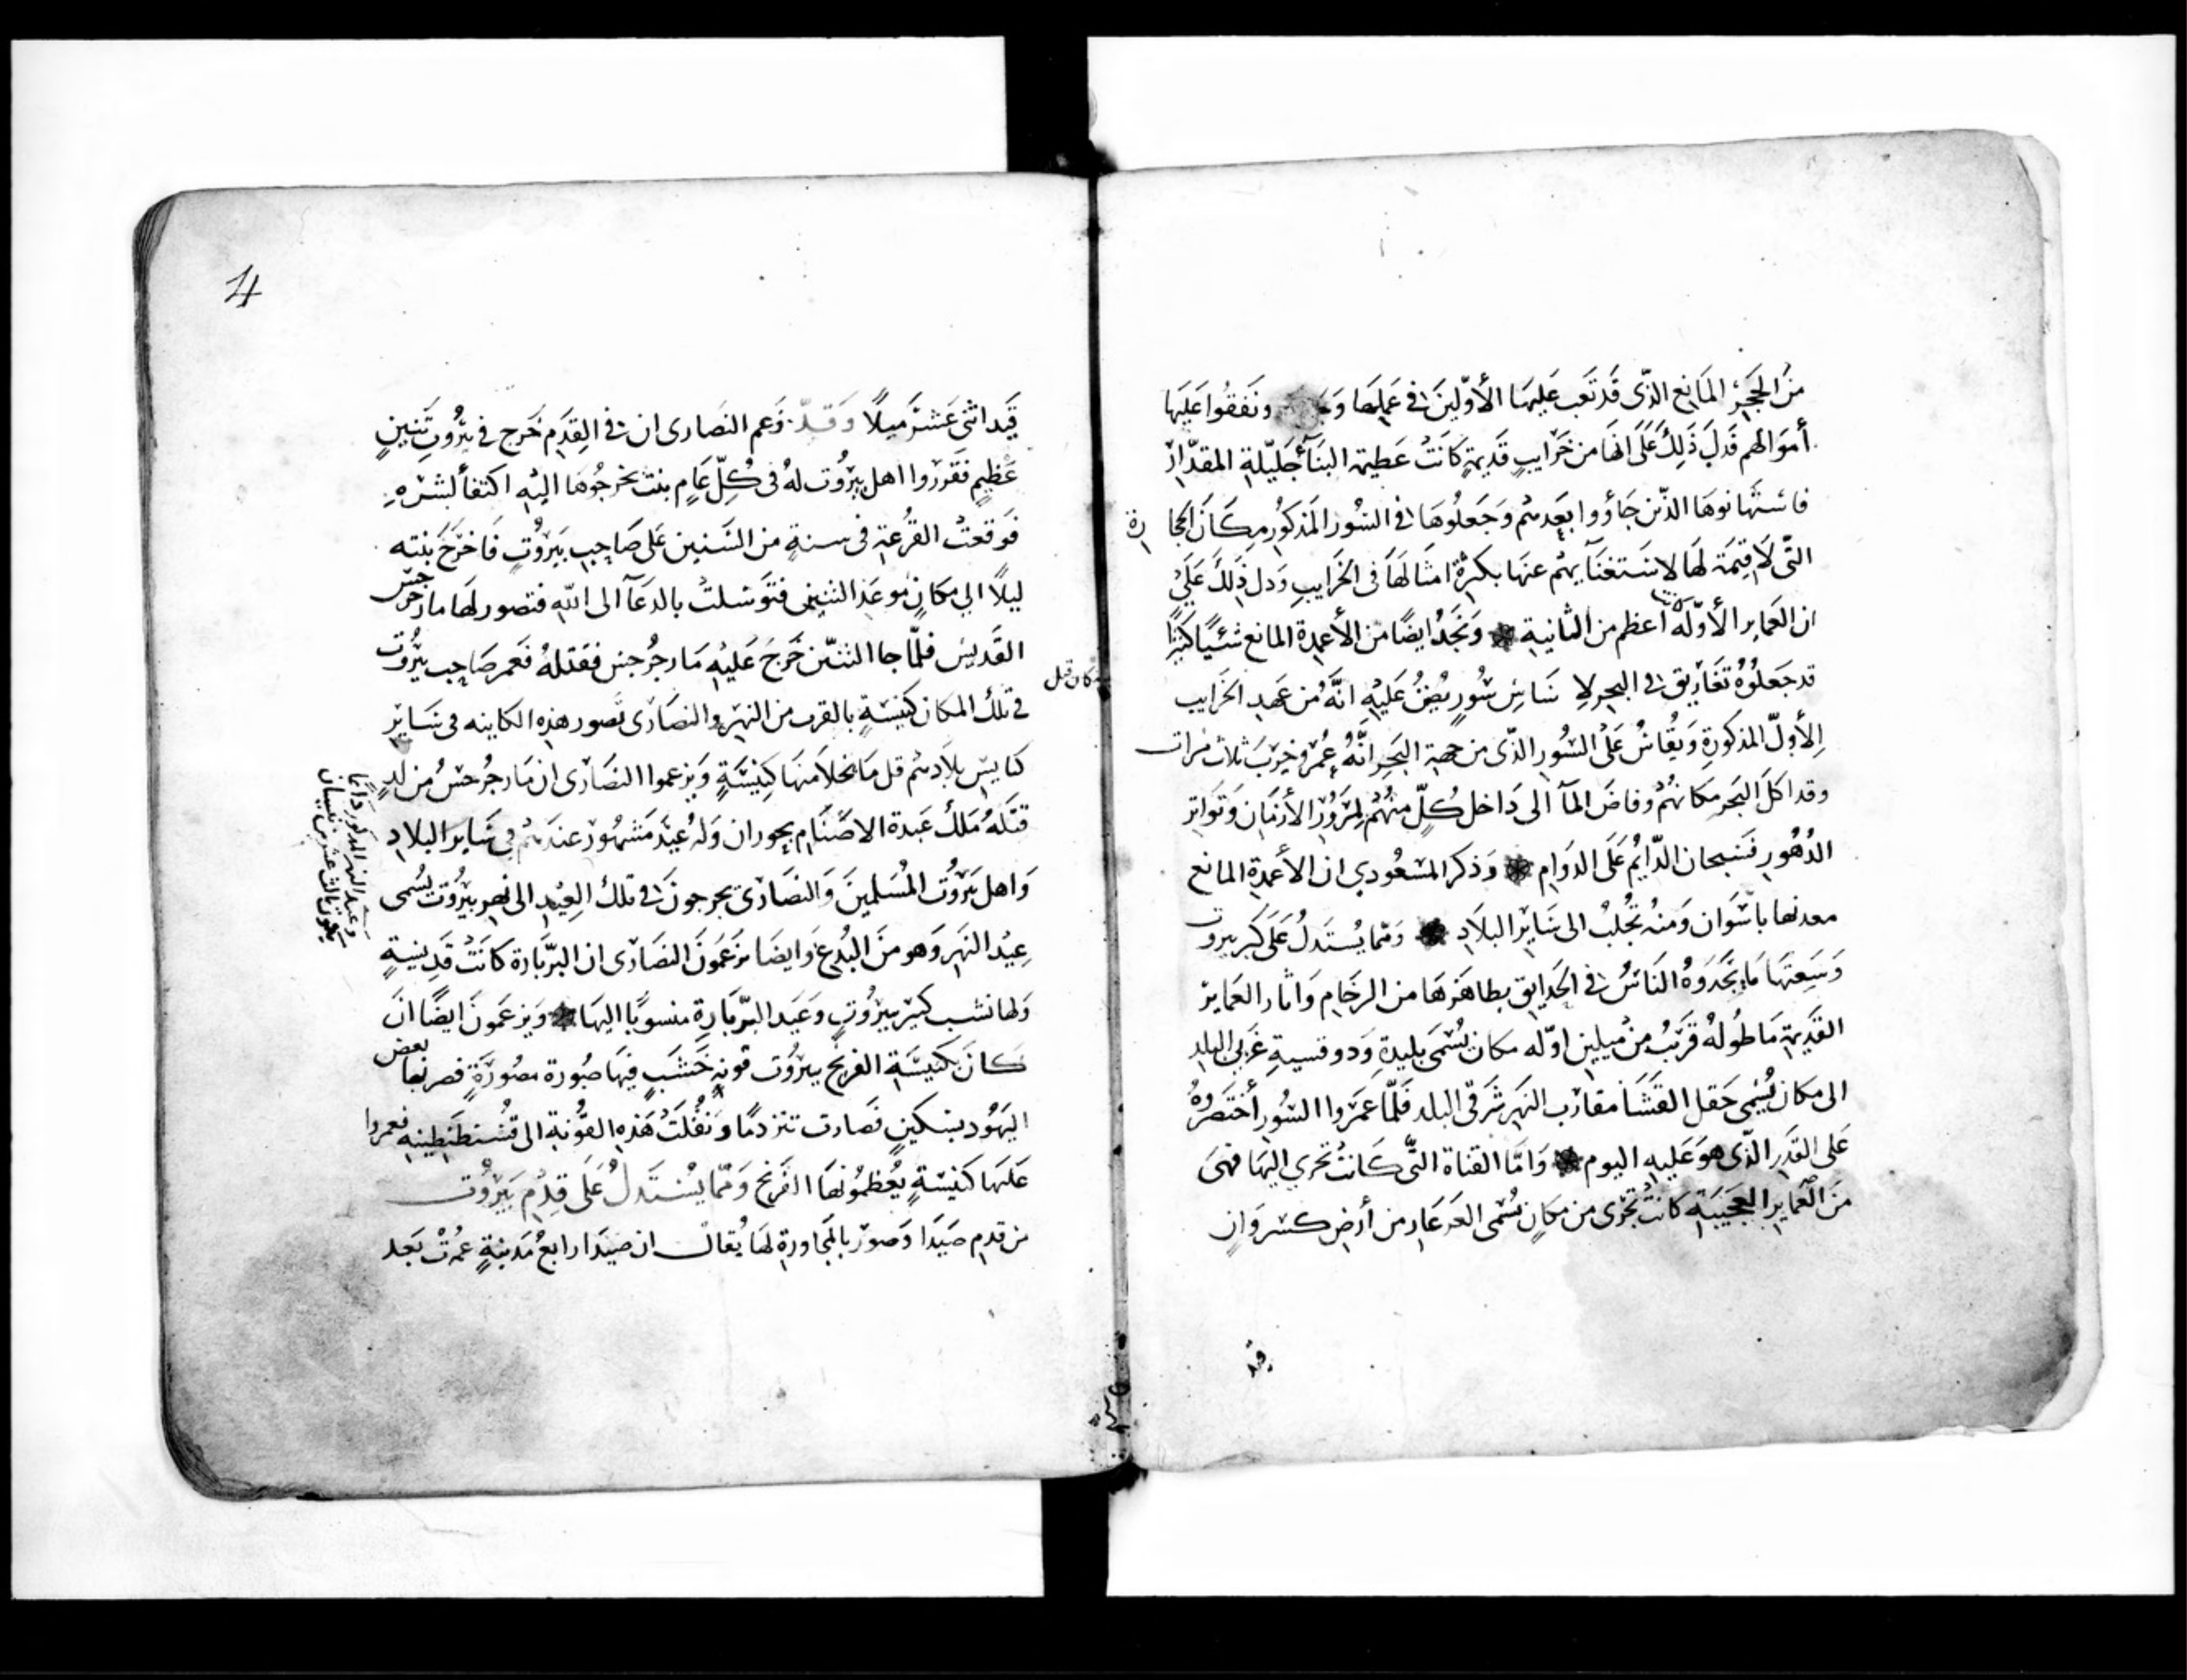 من الحجر المانع الذي قد تعب عليها الأولين في عملها ونفقوا عليها
أموالهم فدل ذلك على انها من خرايب قديمة كانت عظيمة البنآ جليلة المقدار
فاستهانوها الذين جاؤوا بعدهم وجعلوها في السور المذكور مكان الحجارة
التي لا قيمة لها لاستغنآيهم عنها بكثرة امثالها في الخرايب ودل ذلك على
ان العماير الأولة أعظم من الثانية ونجد ايضًا من الأعمدة المانع شئيًا كثيرًا
قد جعلوه تفاريق في البحر لاساس سور يظن عليه انه من عهد الخرايب
الأول المذكورة ويقاس على السور الذي من جهة البحر انه عمر وخرب ثلاث مرات
وقد اكل البحر مكانهم وفاض المآ الى داخل كل منهم لمرور الأزمان وتواتر
الدهور فسبحان الدايم على الدوام وذكر المسعودي ان الأعمدة المانع
معدنها باسوان ومنه تجلب الى ساير البلاد ومما يستدل على كبر بيروت
وسعتها ما يجدوه الناس في الحدايق بظاهرها من الرخام واثار العماير
القديمة ما طوله قريب من ميلين اوله مكان يسمى بليدة ودوقسية غربي البلد
الى مكان يسمى حقل القشا مقارب النهر شرقي البلد فلما عمروا السور أختصروه
على القدر الذي هو عليه اليوم واما القناة التي كانت تجري اليها فهى
من العماير العجيبة كانت تجرى من مكان يسمى العرعار من أرض كسروان
قيد
4
قيد اثنى عشر ميلًا زعم النصارى ان في القدم خرج في بيروت تنين
عظيم فقرروا اهل بيروت له فى كل عام بنت يخرجوها اليه اكتفأ لشره
فوقعت القرعة فى سنة من السنين على صاحب بيروت فاخرج بنته
ليلًا الي مكان موعد التنين فتوسلت بالدعآ الى الله فتصور لها مار جرجس
القديس فلما جا التنين خرج عليه مار جرجس فقتله فعمر صاحب بيروت
في تلك المكان كنيسة بالقرب من النهر والنصارى تصور هذه الكاينه فى ساير
كنايس بلادهم قل ما تخلا منها كنيسة ويزعموا النصارى ان مار جرجس من لد
قتله ملك عبدة الاصنام بحوران وله عيد مشهور عندهم في ساير البلاد
واهل بيروت المسلمين والنصارى يخرجون في تلك العيد الى نهر بيروت يسمى
عيد النهر وهو من البدع وايضا يزعمون النصارى ان البربارة كانت قديسة
ولها نسب كبير بيروت وعيد البربارة منسوبًا اليها ويزعمون ايضًا ان
كان بكنيسة الفرنج بيروت قونة خشب فيها صورة مصورة فضربها بعض
اليهود بسكين فصارت تنز دمًا ونقلت هذه القونة الى قسنطنطينيه فعمروا
عليها كنيسة يعظمونها الفرنج ومما يستدل على قدم بيروت
من قدم صيدا وصور بالمجاورة لها يقال ان صيدا رابع مدينة عمرت بعد
وعيد النهر المذكور دائما
يكون ثالث عشرين نيسان
كان قبل